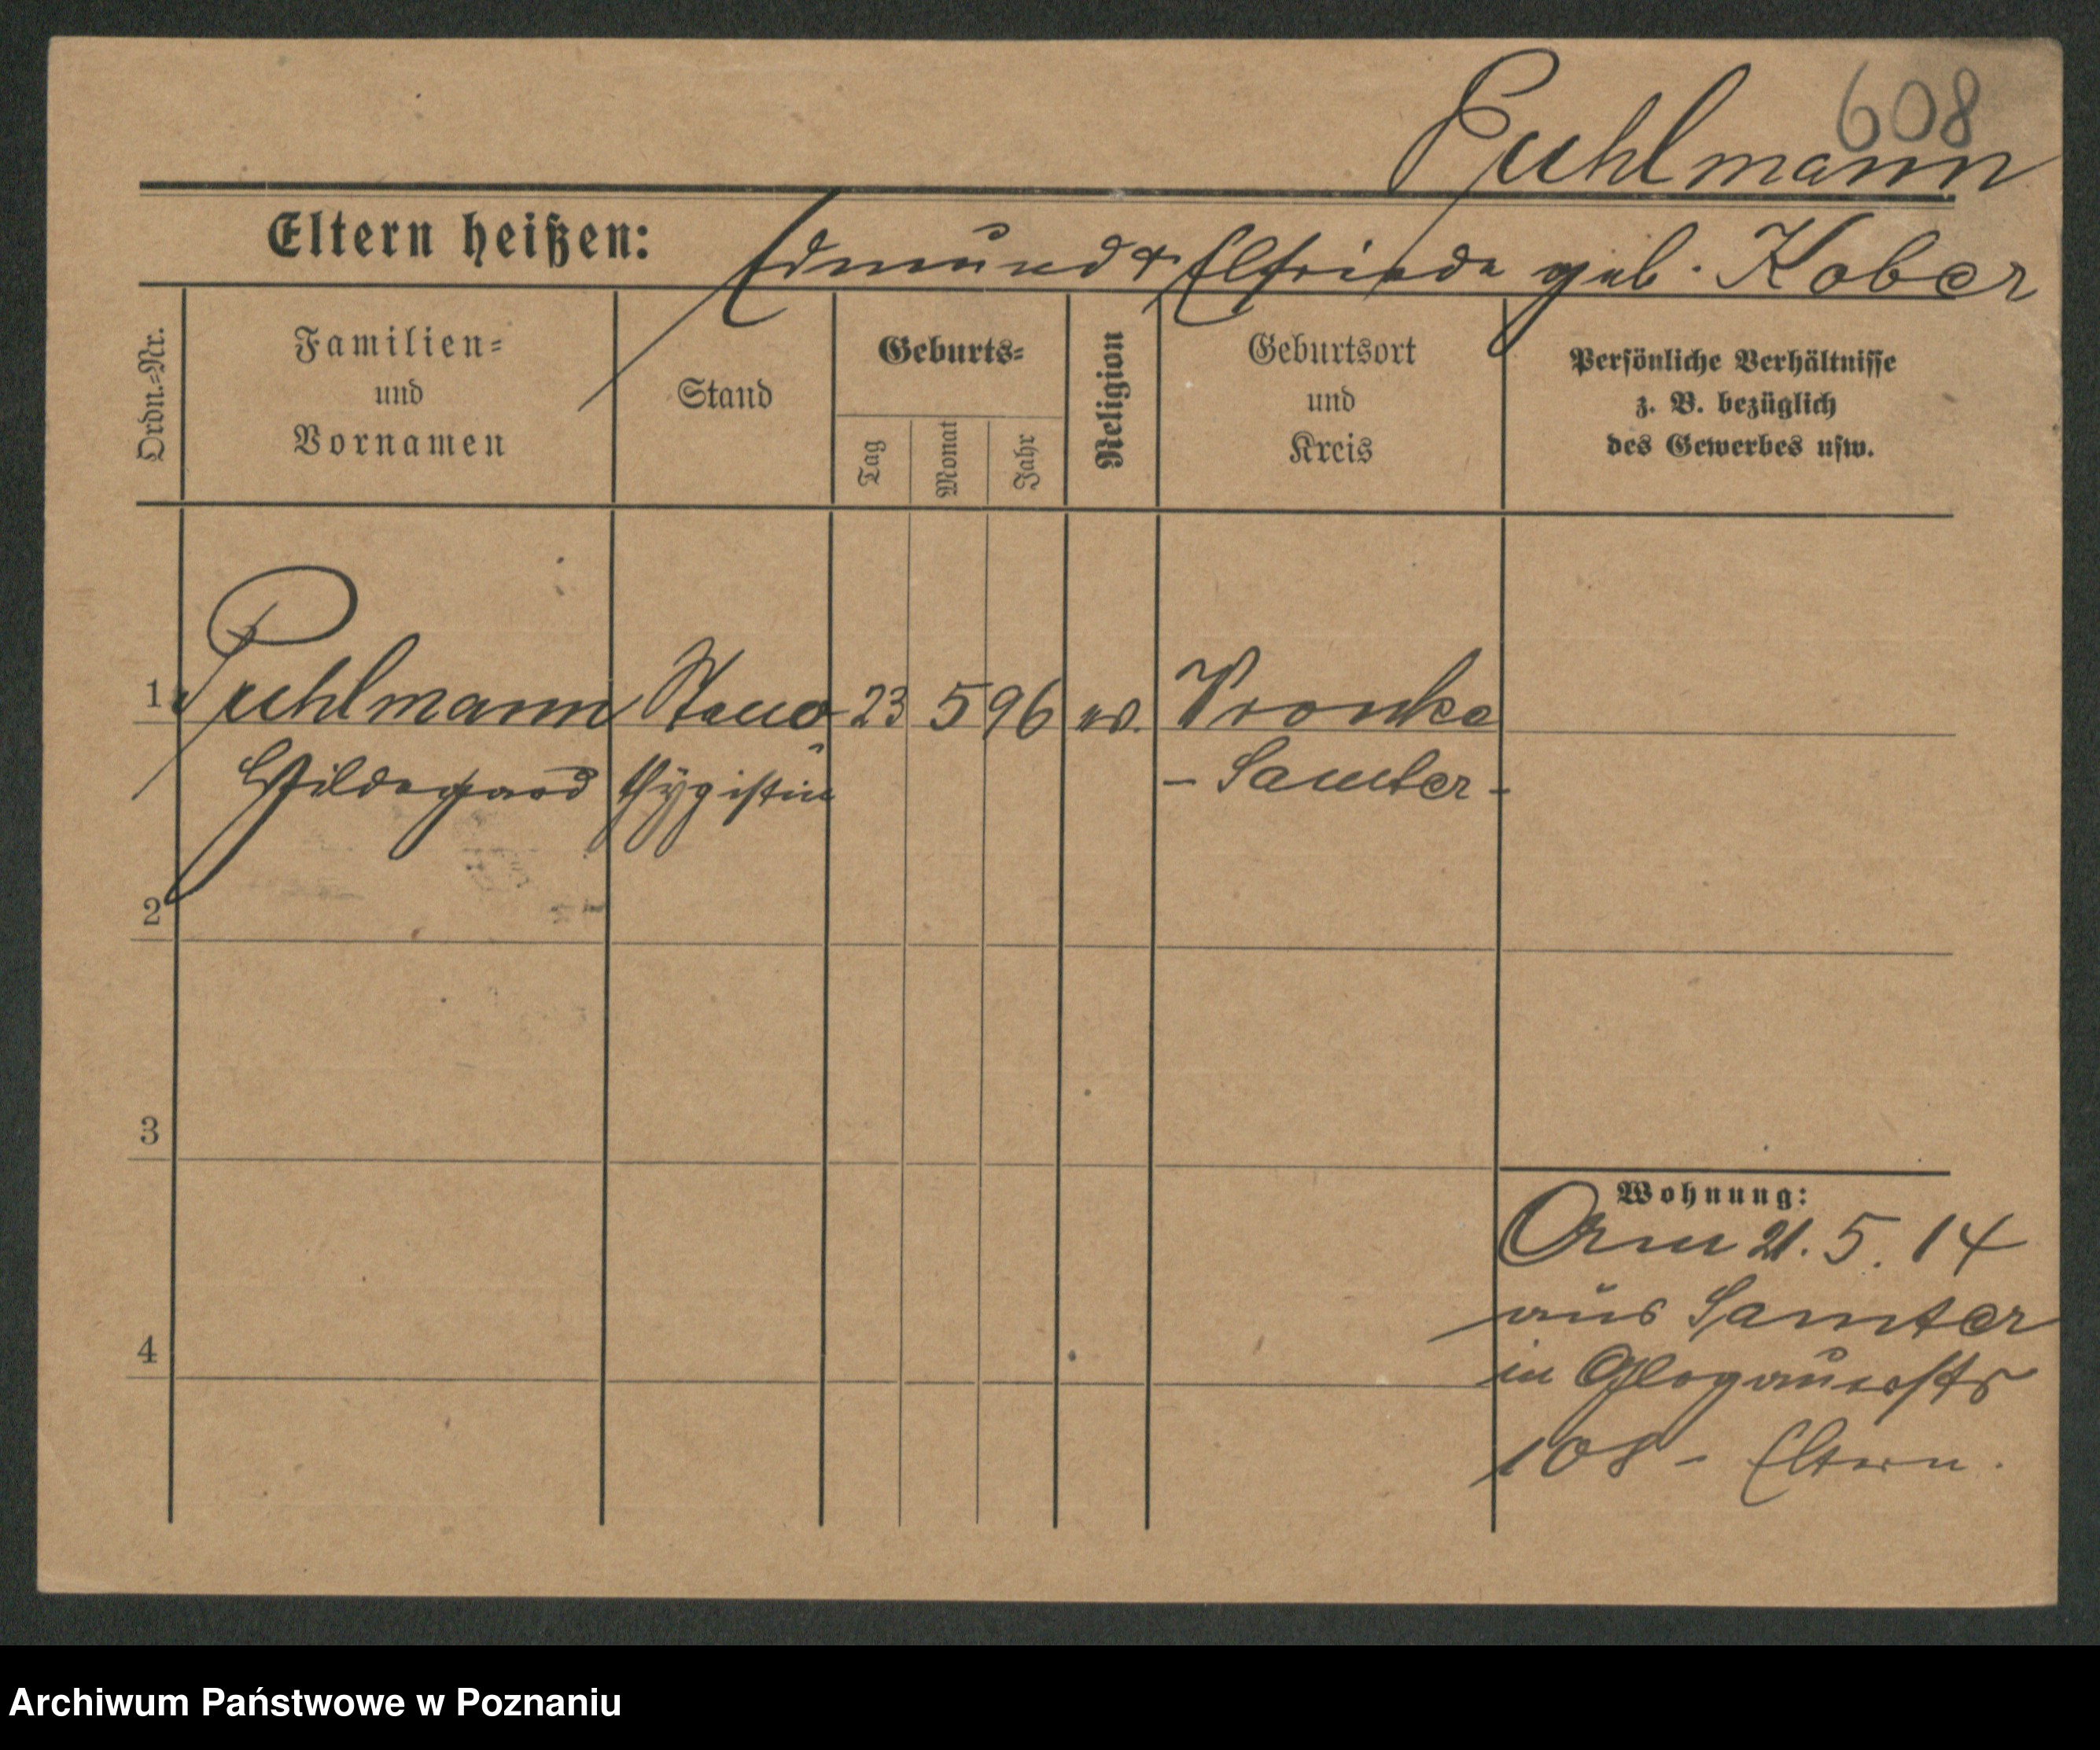 608
Puhlmann
Eltern heißen: Edmund & Elfriede geb. Kober
Ordn.=Nr.
Familien=
und
Vornamen
Stand
Geburts=
Tag
Monat
Jahr
Religion
Geburtsort
und
Kreis
Persönliche Verhältnisse
z. B. bezüglich
des Gewerbes usw.
1 Puhlmann Steno 23 5 96 ev. Wronke
Hildegard typistin - Samter -
2
3
4
Wohnung:
21. 5. 14
aus Samter
in Glogauerstr
108 - Eltern.
Archiwum Państwowe w Poznaniu